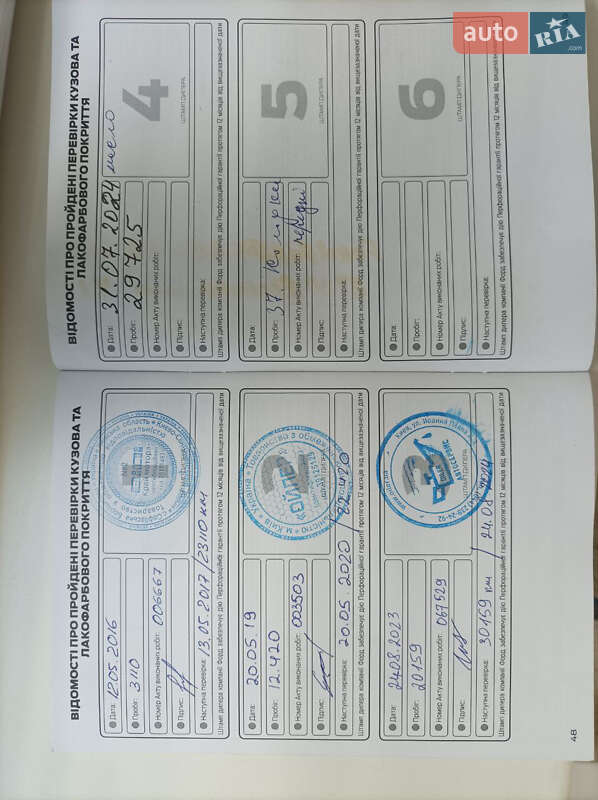 auto RIA .com
ВІДОМОСТІ ПРО ПРОЙДЕНІ ПЕРЕВІРКИ КУЗОВА ТА
ЛАКОФАРБОВОГО ПОКРИТТЯ
Дата: 12.05.2016
Пробіг: 3110
Номер Акту виконаних робіт: 006667
Підпис:
Наступна перевірка: 13.05.2017/23110 км
Штамп дилера компанії Форд забезпечує дію Перфораційної гарантії протягом 12 місяців від вищезазначеної дати
Дата: 20.05.19
Пробіг: 12.420
Номер Акту виконаних робіт: 003503
Підпис:
Наступна перевірка: 20.05.2020
Штамп дилера компанії Форд забезпечує дію Перфораційної гарантії протягом 12 місяців від вищезазначеної дати
Дата: 24.08.2023
Пробіг: 20159
Номер Акту виконаних робіт: 067529
Підпис:
Наступна перевірка: 30159 км / 24.08.2024
Штамп дилера компанії Форд забезпечує дію Перфораційної гарантії протягом 12 місяців від вищезазначеної дати
ШТАМП ДИЛЕРА
48
ВІДОМОСТІ ПРО ПРОЙДЕНІ ПЕРЕВІРКИ КУЗОВА ТА
ЛАКОФАРБОВОГО ПОКРИТТЯ
Дата: 31.07.2024 масло
Пробіг: 29725
Номер Акту виконаних робіт:
Підпис:
Наступна перевірка:
4
ШТАМП ДИЛЕРА
Штамп дилера компанії Форд забезпечує дію Перфораційної гарантії протягом 12 місяців від вищезазначеної дати
Дата:
Пробіг: 37. Колодки
Номер Акту виконаних робіт: передні
Підпис:
Наступна перевірка:
5
ШТАМП ДИЛЕРА
Штамп дилера компанії Форд забезпечує дію Перфораційної гарантії протягом 12 місяців від вищезазначеної дати
Дата:
Пробіг:
Номер Акту виконаних робіт:
Підпис:
Наступна перевірка:
6
ШТАМП ДИЛЕРА
Штамп дилера компанії Форд забезпечує дію Перфораційної гарантії протягом 12 місяців від вищезазначеної дати